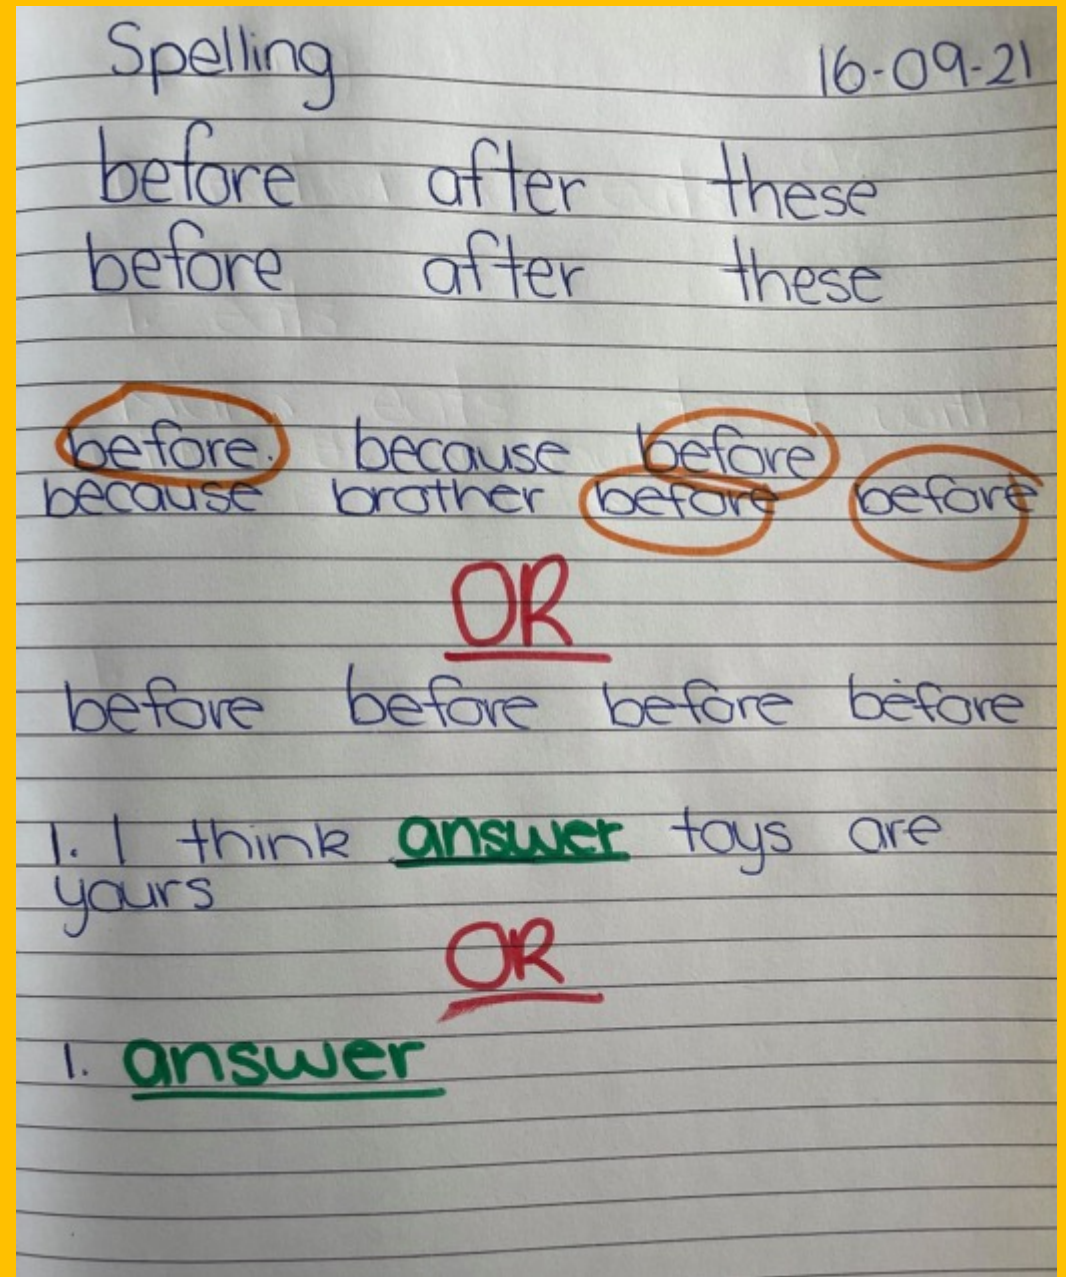 Spelling 16-09-21
before after these
before after these
before. because before
because brother before before
OR
before before before before
1. I think answer toys are
yours
OR
1. answer